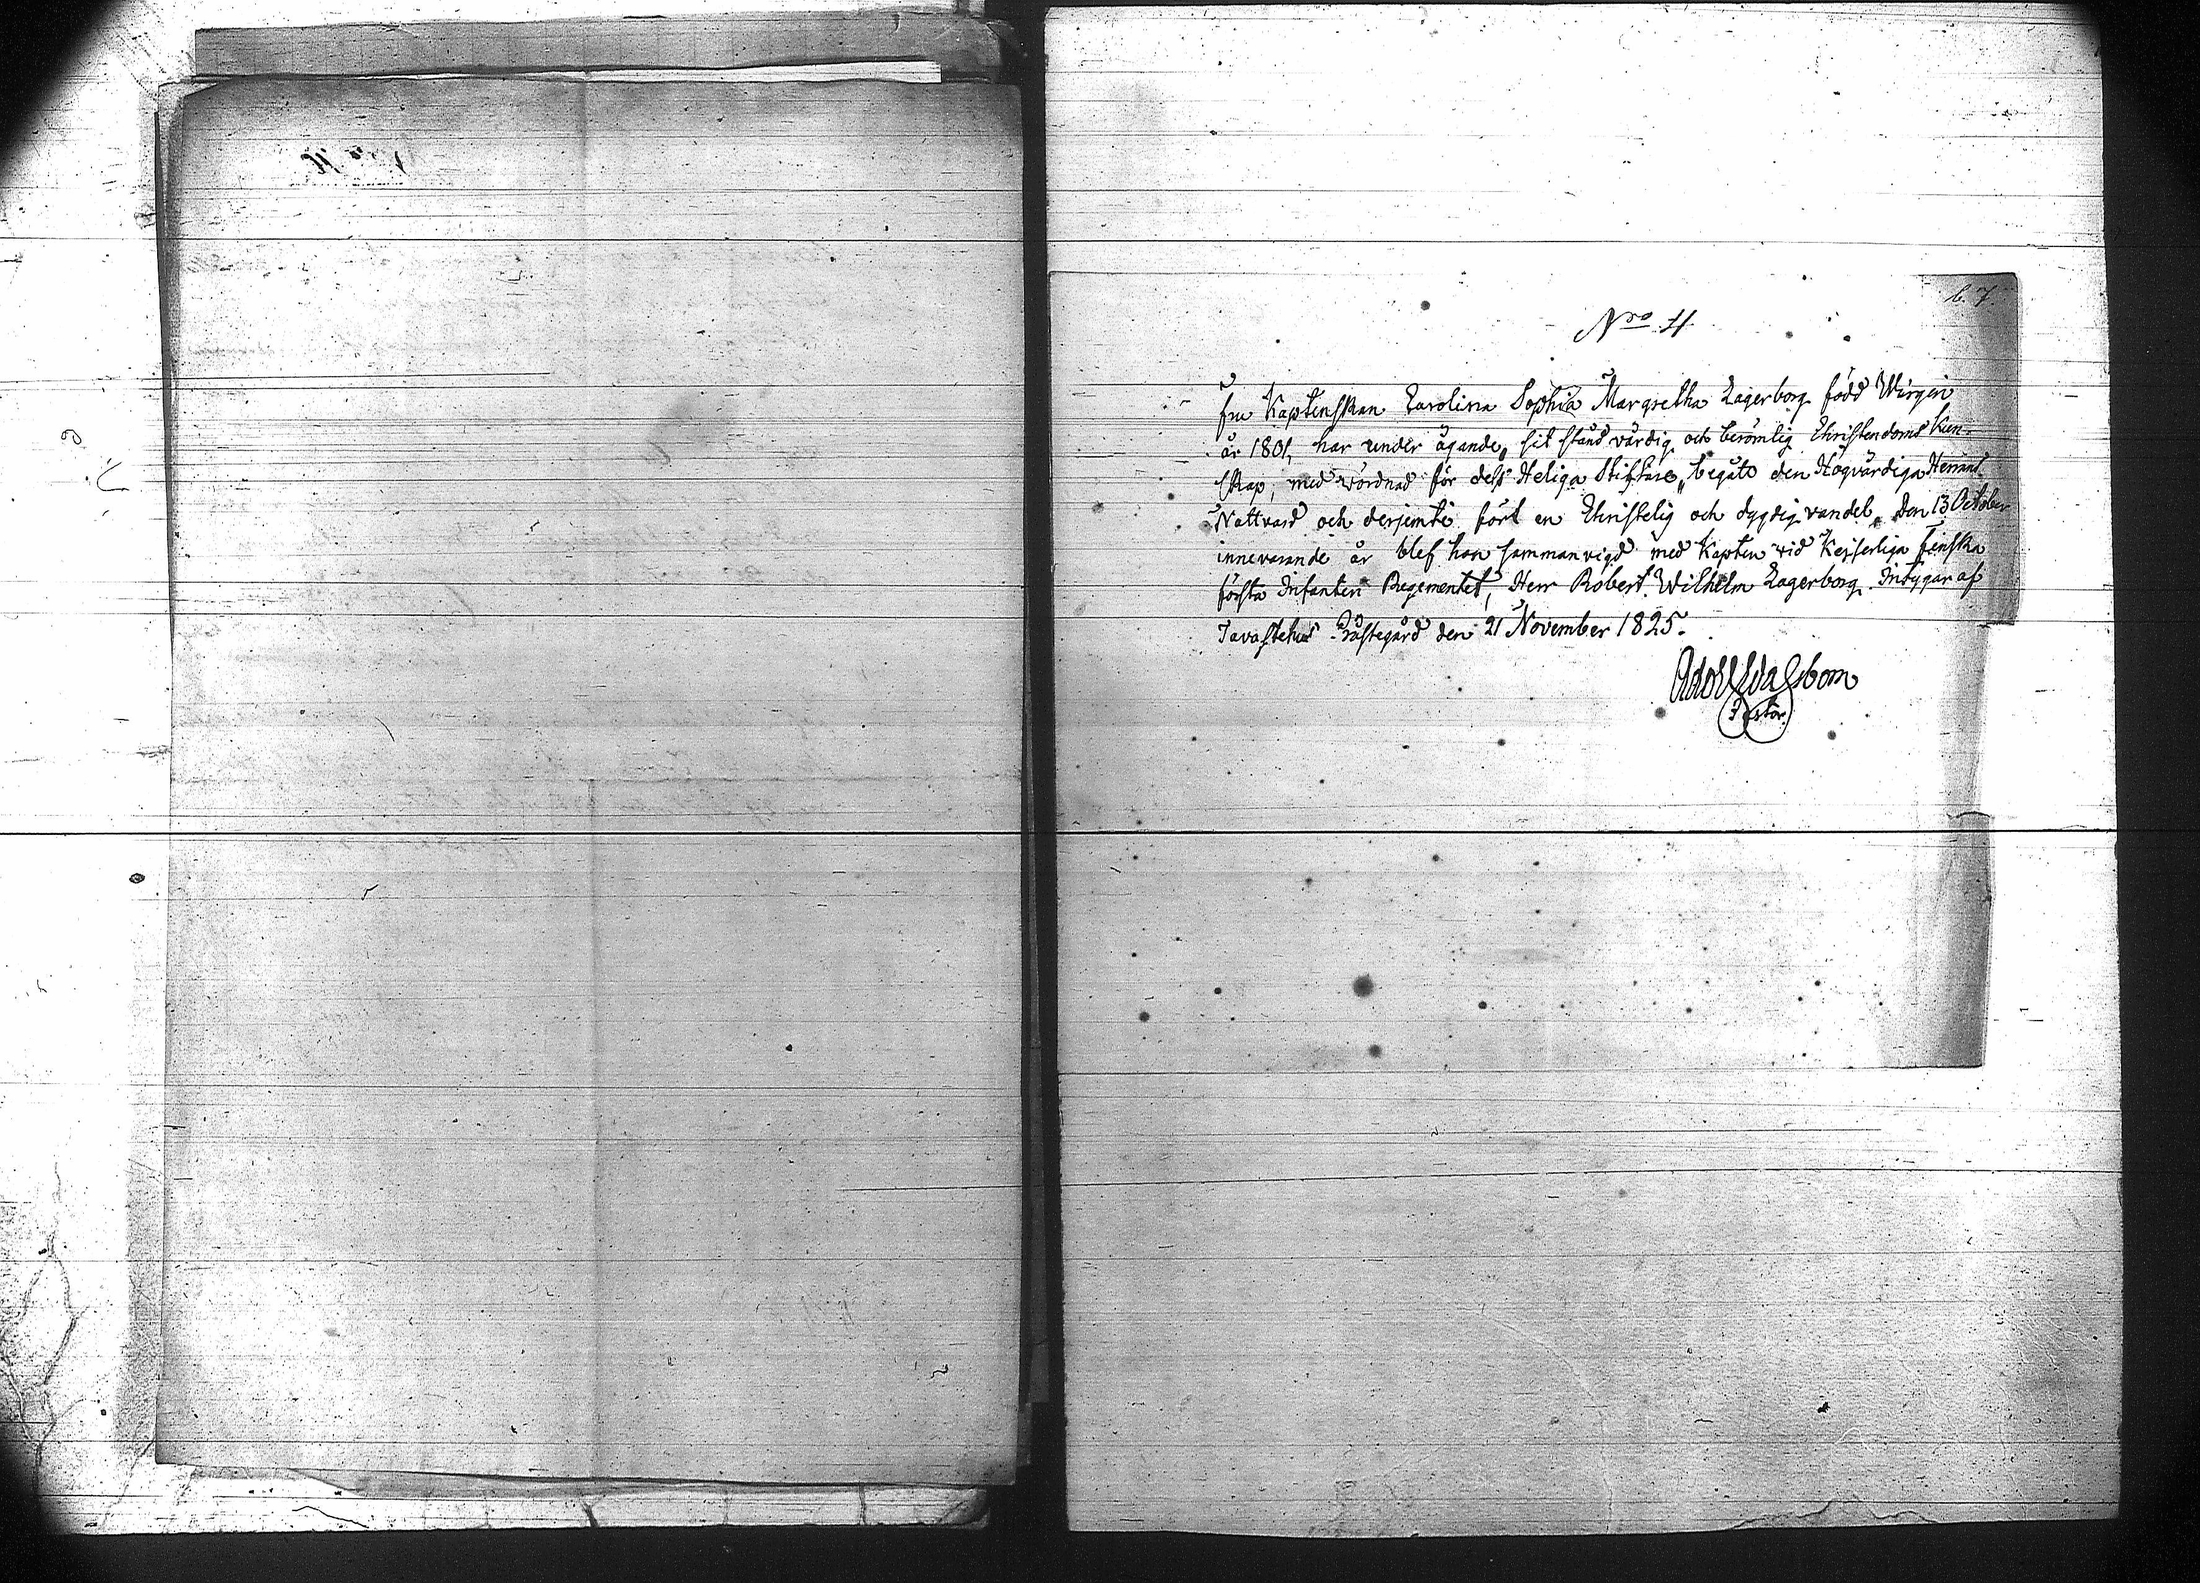 b. 7.
Nro 4
Fru Kaptenskan Carolina Sophia Margretha Lagerborg född Wirgin
år 1801, har under ägande, sit stånd värdig och berömlig Christendoms kun-
skap, med wördnad för dess Heliga Stiftare, begått den Högvärdiga Herrans
Nattvard och derjemte fört en Christelig och dygdig vandel. Den 13 October
innevarande år blef hon sammanvigd med Kapten vid Kejserliga finska
första Infanteri Regementet, Herr Robert Wilhelm Lagerborg. Intygar af
Tavastehus Prästegård den 21 November 1825.
Pastor.